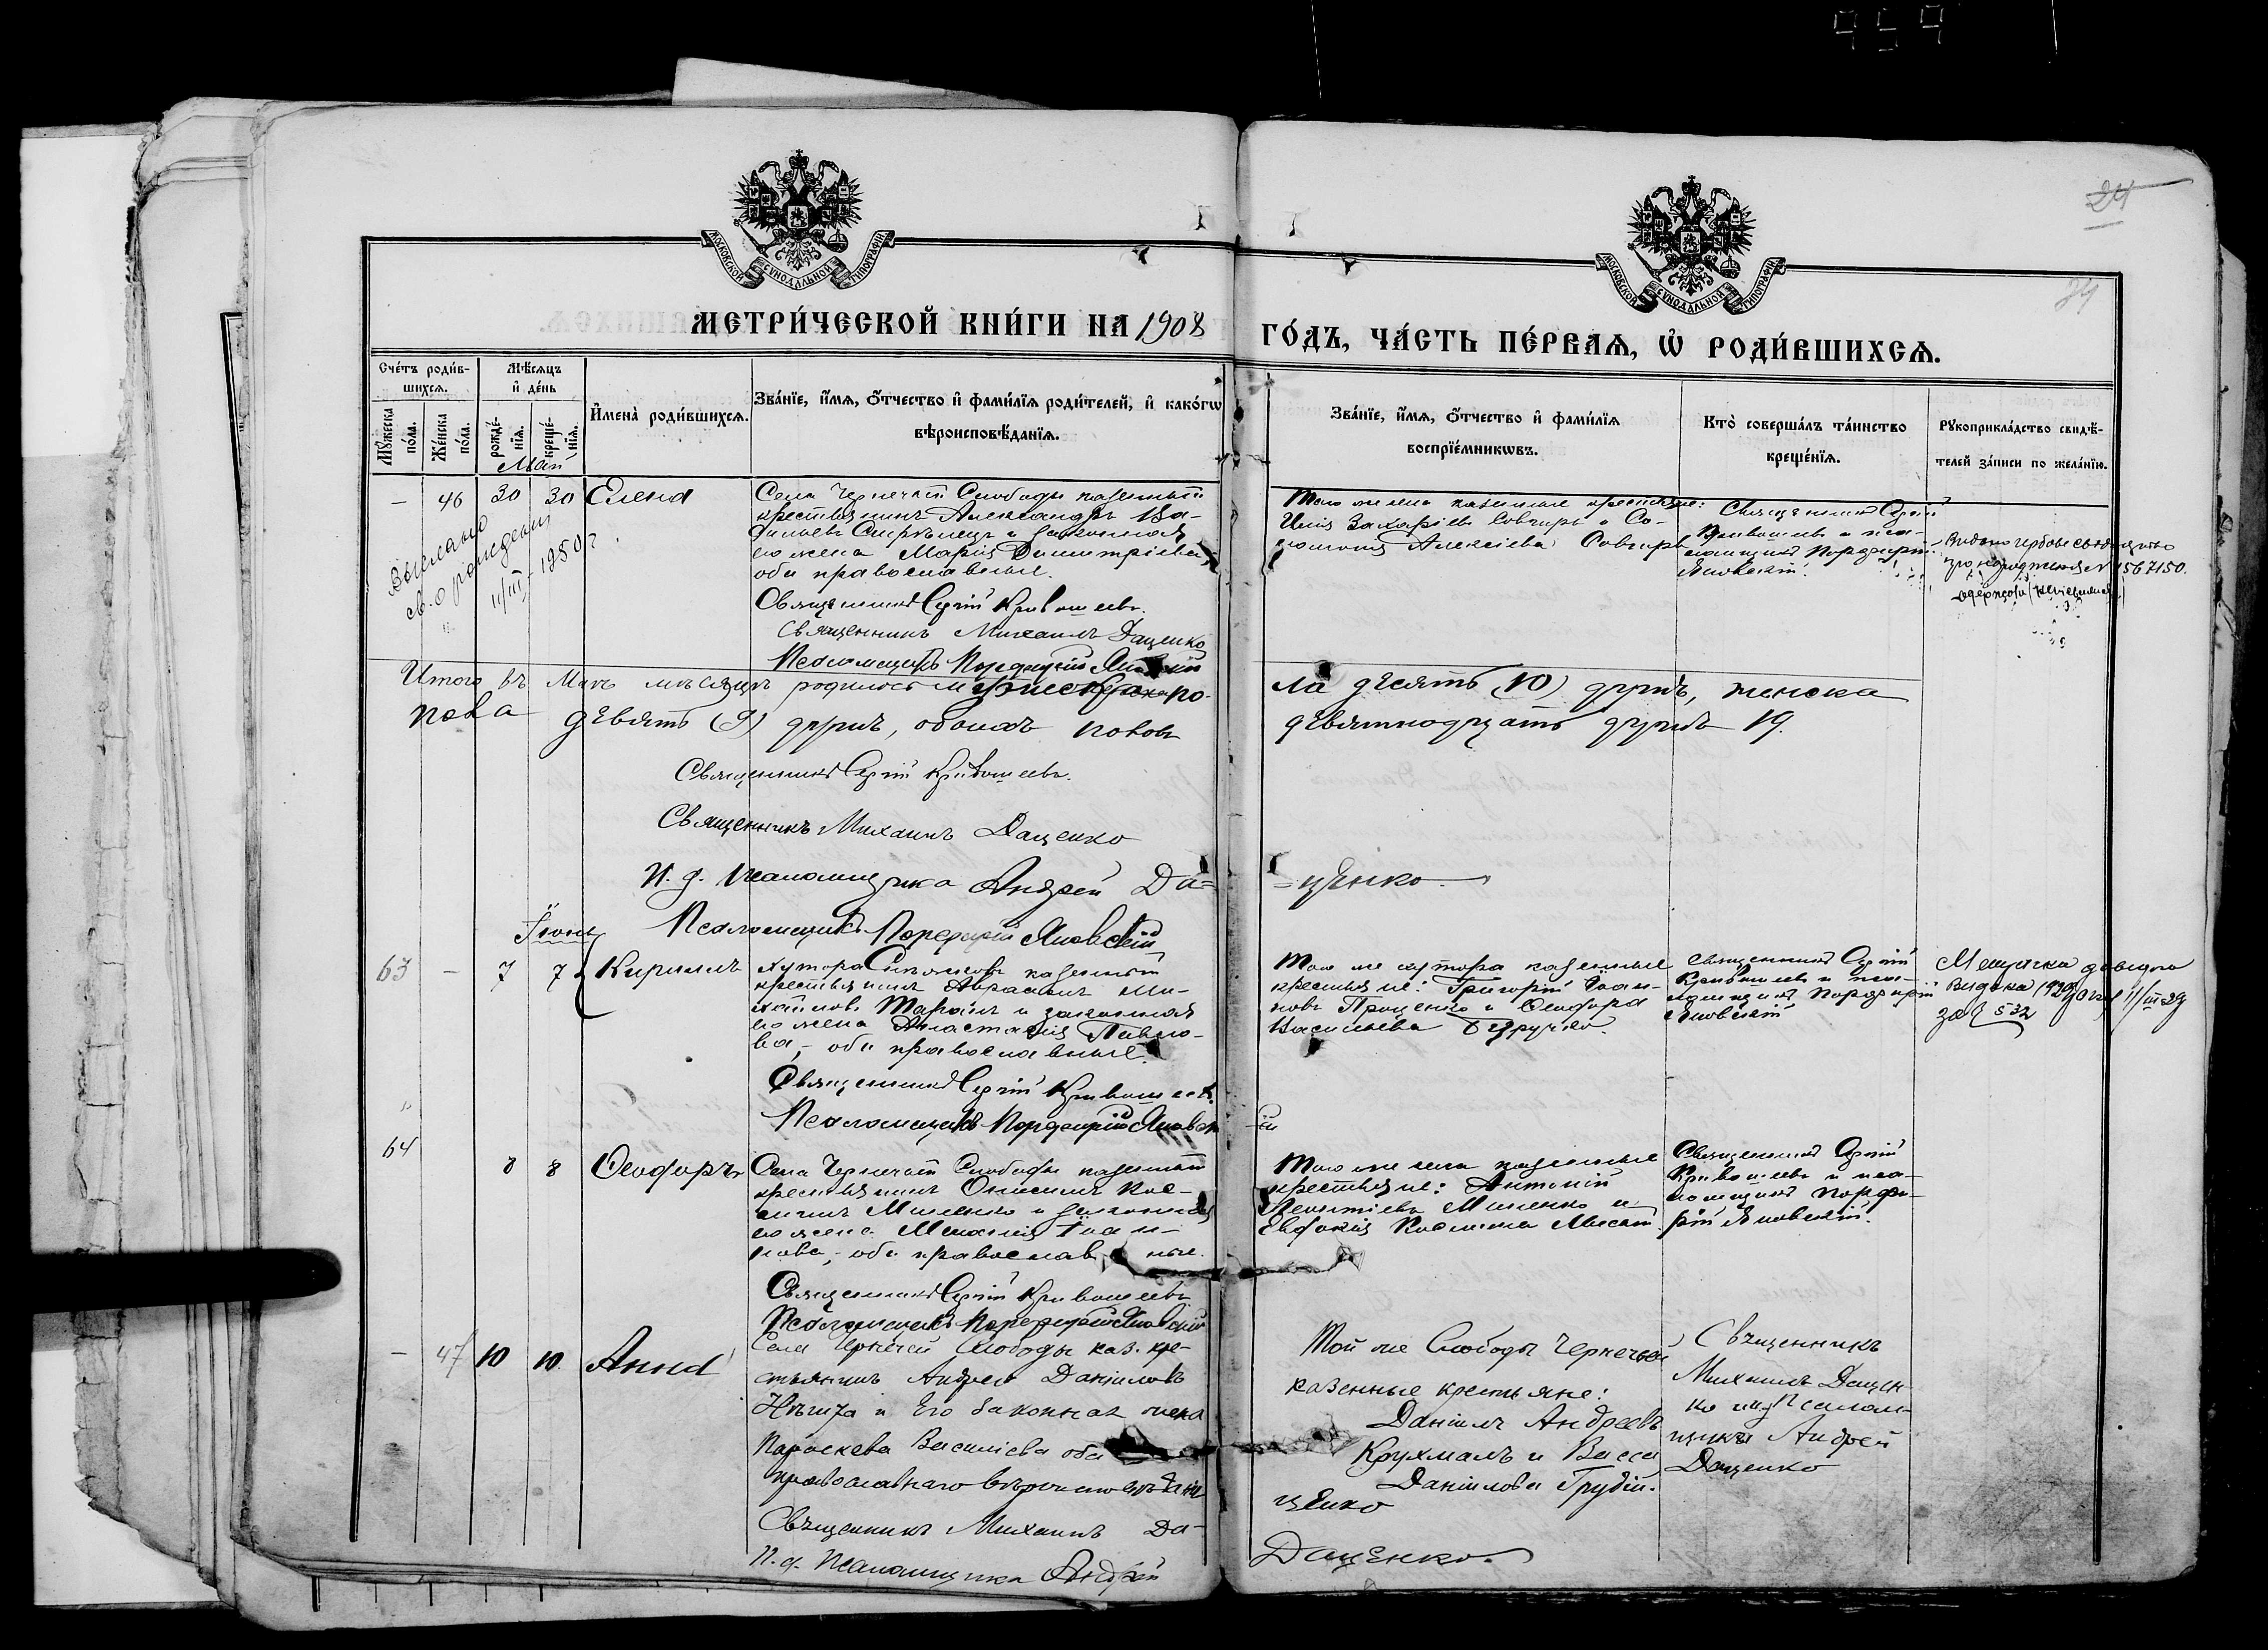 24
24
МОСКОВСКОЙ СУНОДАЛЬНОЙ ТИПОГРАФІИ
МОСКОВСКОЙ СУНОДАЛЬНОЙ ТИПОГРАФІИ
МЕТРИ́ЧЕСКОЙ КНИ́ГИ НА 1908
ГО́ДЪ, ЧА́СТЬ ПЕ́РВАѦ, Ѡ҆ РОДИ́ВШИХСѦ.
Счéтъ роди́в-
шихсѧ.
Мꙋ́жеска по́ла.
Же́нска по́ла.
Мѣ́сѧцъ
и҆ де́нь
рожде́-
нїѧ.
креще́-
нїѧ.
И҆мена̀ роди́вшихсѧ.
Зва́нїе, и҆́мѧ, ѻ҆́тчество и҆ фами́лїѧ роди́телей, и҆ како́гѡ
вѣроисповѣ́данїѧ.
Зва́нїе, и҆́мѧ, ѻ҆́тчество и҆ фами́лїѧ
воспрїе́мникѡвъ.
Кто̀ соверша́лъ та́инство
креще́нїѧ.
Рꙋкоприкла́дство свидѣ́-
телей за́писи по жела́нїю.
Май
— 46 30 30 Елена
Села Чернечей Слободы казенный
крестьянинъ Александръ Ва-
сильевъ Стрѣлецъ и законная
его жена Марія Димитріева,
оба православные.
Священникъ Сергій Кривошеевъ.
Священникъ Михаилъ Даценко
Псаломщикъ Порфирій Яновскій
Того же села казенные крестьяне:
Илія Захаріевъ Совгирь и Со-
Алексіева Совгирь
Священникъ Сергій
Кривошеевъ и пса-
ломщикъ Порфирій
Яновскій.
1567150.
Выслано
св. о рождении
11/III 1950 г.
Итого въ Маѣ мѣсяцѣ родилось мужеска по-
ла десять (10) душъ, женска
пола девять (9) душъ, обоихъ половъ
девятнадцать душъ 19.
Священникъ Сергій Кривошеевъ.
Священникъ Михаилъ Даценко
И. д. псаломщика Андрей Да=
=ценко
Псаломщикъ Порфирій Яновскій
Іюнь
63 — 7 7 Кириллъ
Хутора казенный
крестьянинъ Авраамъ Ми-
хайловъ Таранъ и законная
его жена Анастасія Павло-
ва, оба православные.
Священникъ Сергій Кривошеевъ.
Псаломщикъ Порфирій Яновск
ій
Того же хутора казенные
крестьяне: Григорій Іоан-
новъ Проценко и Ѳеодора
Васильева
Священникъ Сергій
Кривошеевъ и пса-
ломщикъ Порфирій
Яновскій
Метрична довідка
видана 1929 року 11/III 29
за № 532
64 8 8 Ѳеодоръ
Села Чернечей Слободы казенный
крестьянинъ Онисимъ Кос-
миъ Миленко и законная
его жена Меланія Іоан-
нова, оба православные.
Священникъ Сергій Кривошеевъ
Псаломщикъ Порфирій Яновскій
Того же села казенные
крестьяне: Антоній
Леонтіевъ Миленко и
Евдокія Космина
Священникъ Сергій
Кривошеевъ и пса-
ломщикъ Порфи-
рій Яновскій.
— 47 10 10 Анна
Села Чернечей Слободы каз. кре-
стьянинъ Андрей Даніиловъ
и его законная жена
Параскева Василіева оба
православнаго вѣроисповѣданія
Священникъ Михаилъ Да-
ценко
И. д. псаломщика Андрей
Даценко.
Той же Слободы Чернечей
казенные крестьяне:
Даніилъ Андреевъ
Крухмаль и Васса
Даніилова
Священникъ
Михаилъ Дацен-
ко и псалом-
щикъ Андрей
Даценко